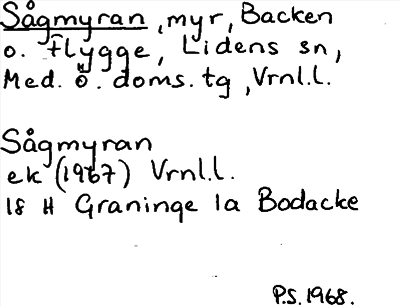 Sågmyran, myr, Backen
o. Flygge, Lidens sn,
Med. Ö. doms. tg, Vrnl.l.
Sågmyran
ek (1967) Vrnl.l.
18 H Graninge 1a Bodacke
P.S. 1968.